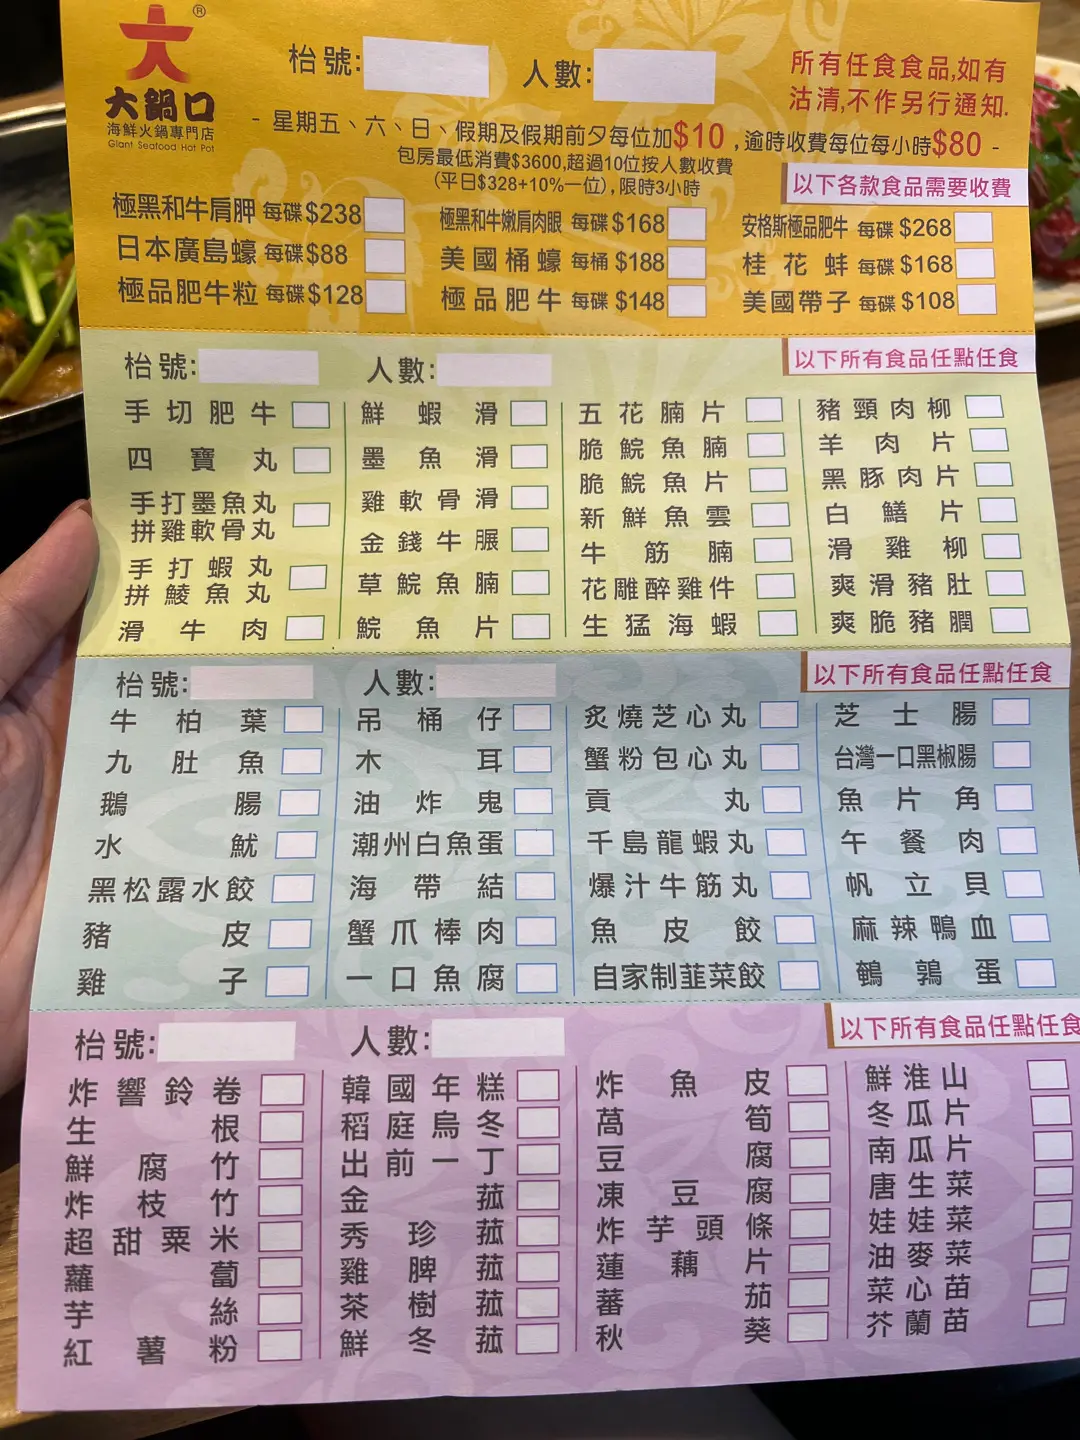 大 ®
大鍋口
海鮮火鍋專門店
Giant Seafood Hot Pot
枱號: 人數:
所有任食食品,如有
沽清,不作另行通知.
- 星期五、六、日、假期及假期前夕每位加$10 ,逾時收費每位每小時$80 -
包房最低消費$3600,超過10位按人數收費
(平日$328+10%一位),限時3小時
以下各款食品需要收費
極黑和牛肩胛 每碟$238 極黑和牛嫩肩肉眼 每碟$168 安格斯極品肥牛 每碟$268
日本廣島蠔 每碟$88 美國桶蠔 每桶$188 桂花蚌 每碟$168
極品肥牛粒 每碟$128 極品肥牛 每碟$148 美國帶子 每碟$108
枱號: 人數: 以下所有食品任點任食
手切肥牛
四寶丸
手打墨魚丸
拼雞軟骨丸
手打蝦丸
拼鯪魚丸
滑牛肉
鮮蝦滑
墨魚滑
雞軟骨滑
金錢牛𦟌
草鯇魚腩
鯇魚片
五花腩片
脆鯇魚腩
脆鯇魚片
新鮮魚雲
牛筋腩
花雕醉雞件
生猛海蝦
豬頸肉柳
羊肉片
黑豚肉片
白鱔片
滑雞柳
爽滑豬肚
爽脆豬膶
枱號: 人數: 以下所有食品任點任食
牛柏葉
九肚魚
鵝腸
水魷
黑松露水餃
豬皮
雞子
吊桶仔
木耳
油炸鬼
潮州白魚蛋
海帶結
蟹爪棒肉
一口魚腐
炙燒芝心丸
蟹粉包心丸
貢丸
千島龍蝦丸
爆汁牛筋丸
魚皮餃
自家制韮菜餃
芝士腸
台灣一口黑椒腸
魚片角
午餐肉
帆立貝
麻辣鴨血
鵪鶉蛋
枱號: 人數: 以下所有食品任點任食
炸響鈴卷
生根
鮮腐竹
炸枝竹
超甜粟米
蘿蔔
芋絲
紅薯粉
韓國年糕
稻庭烏冬
出前一丁
金菰
秀珍菰
雞脾菰
茶樹菰
鮮冬菰
炸魚皮
萵筍
豆腐
凍豆腐
炸芋頭條
蓮藕片
蕃茄
秋葵
鮮淮山
冬瓜片
南瓜片
唐生菜
娃娃菜
油麥菜
菜心苗
芥蘭苗